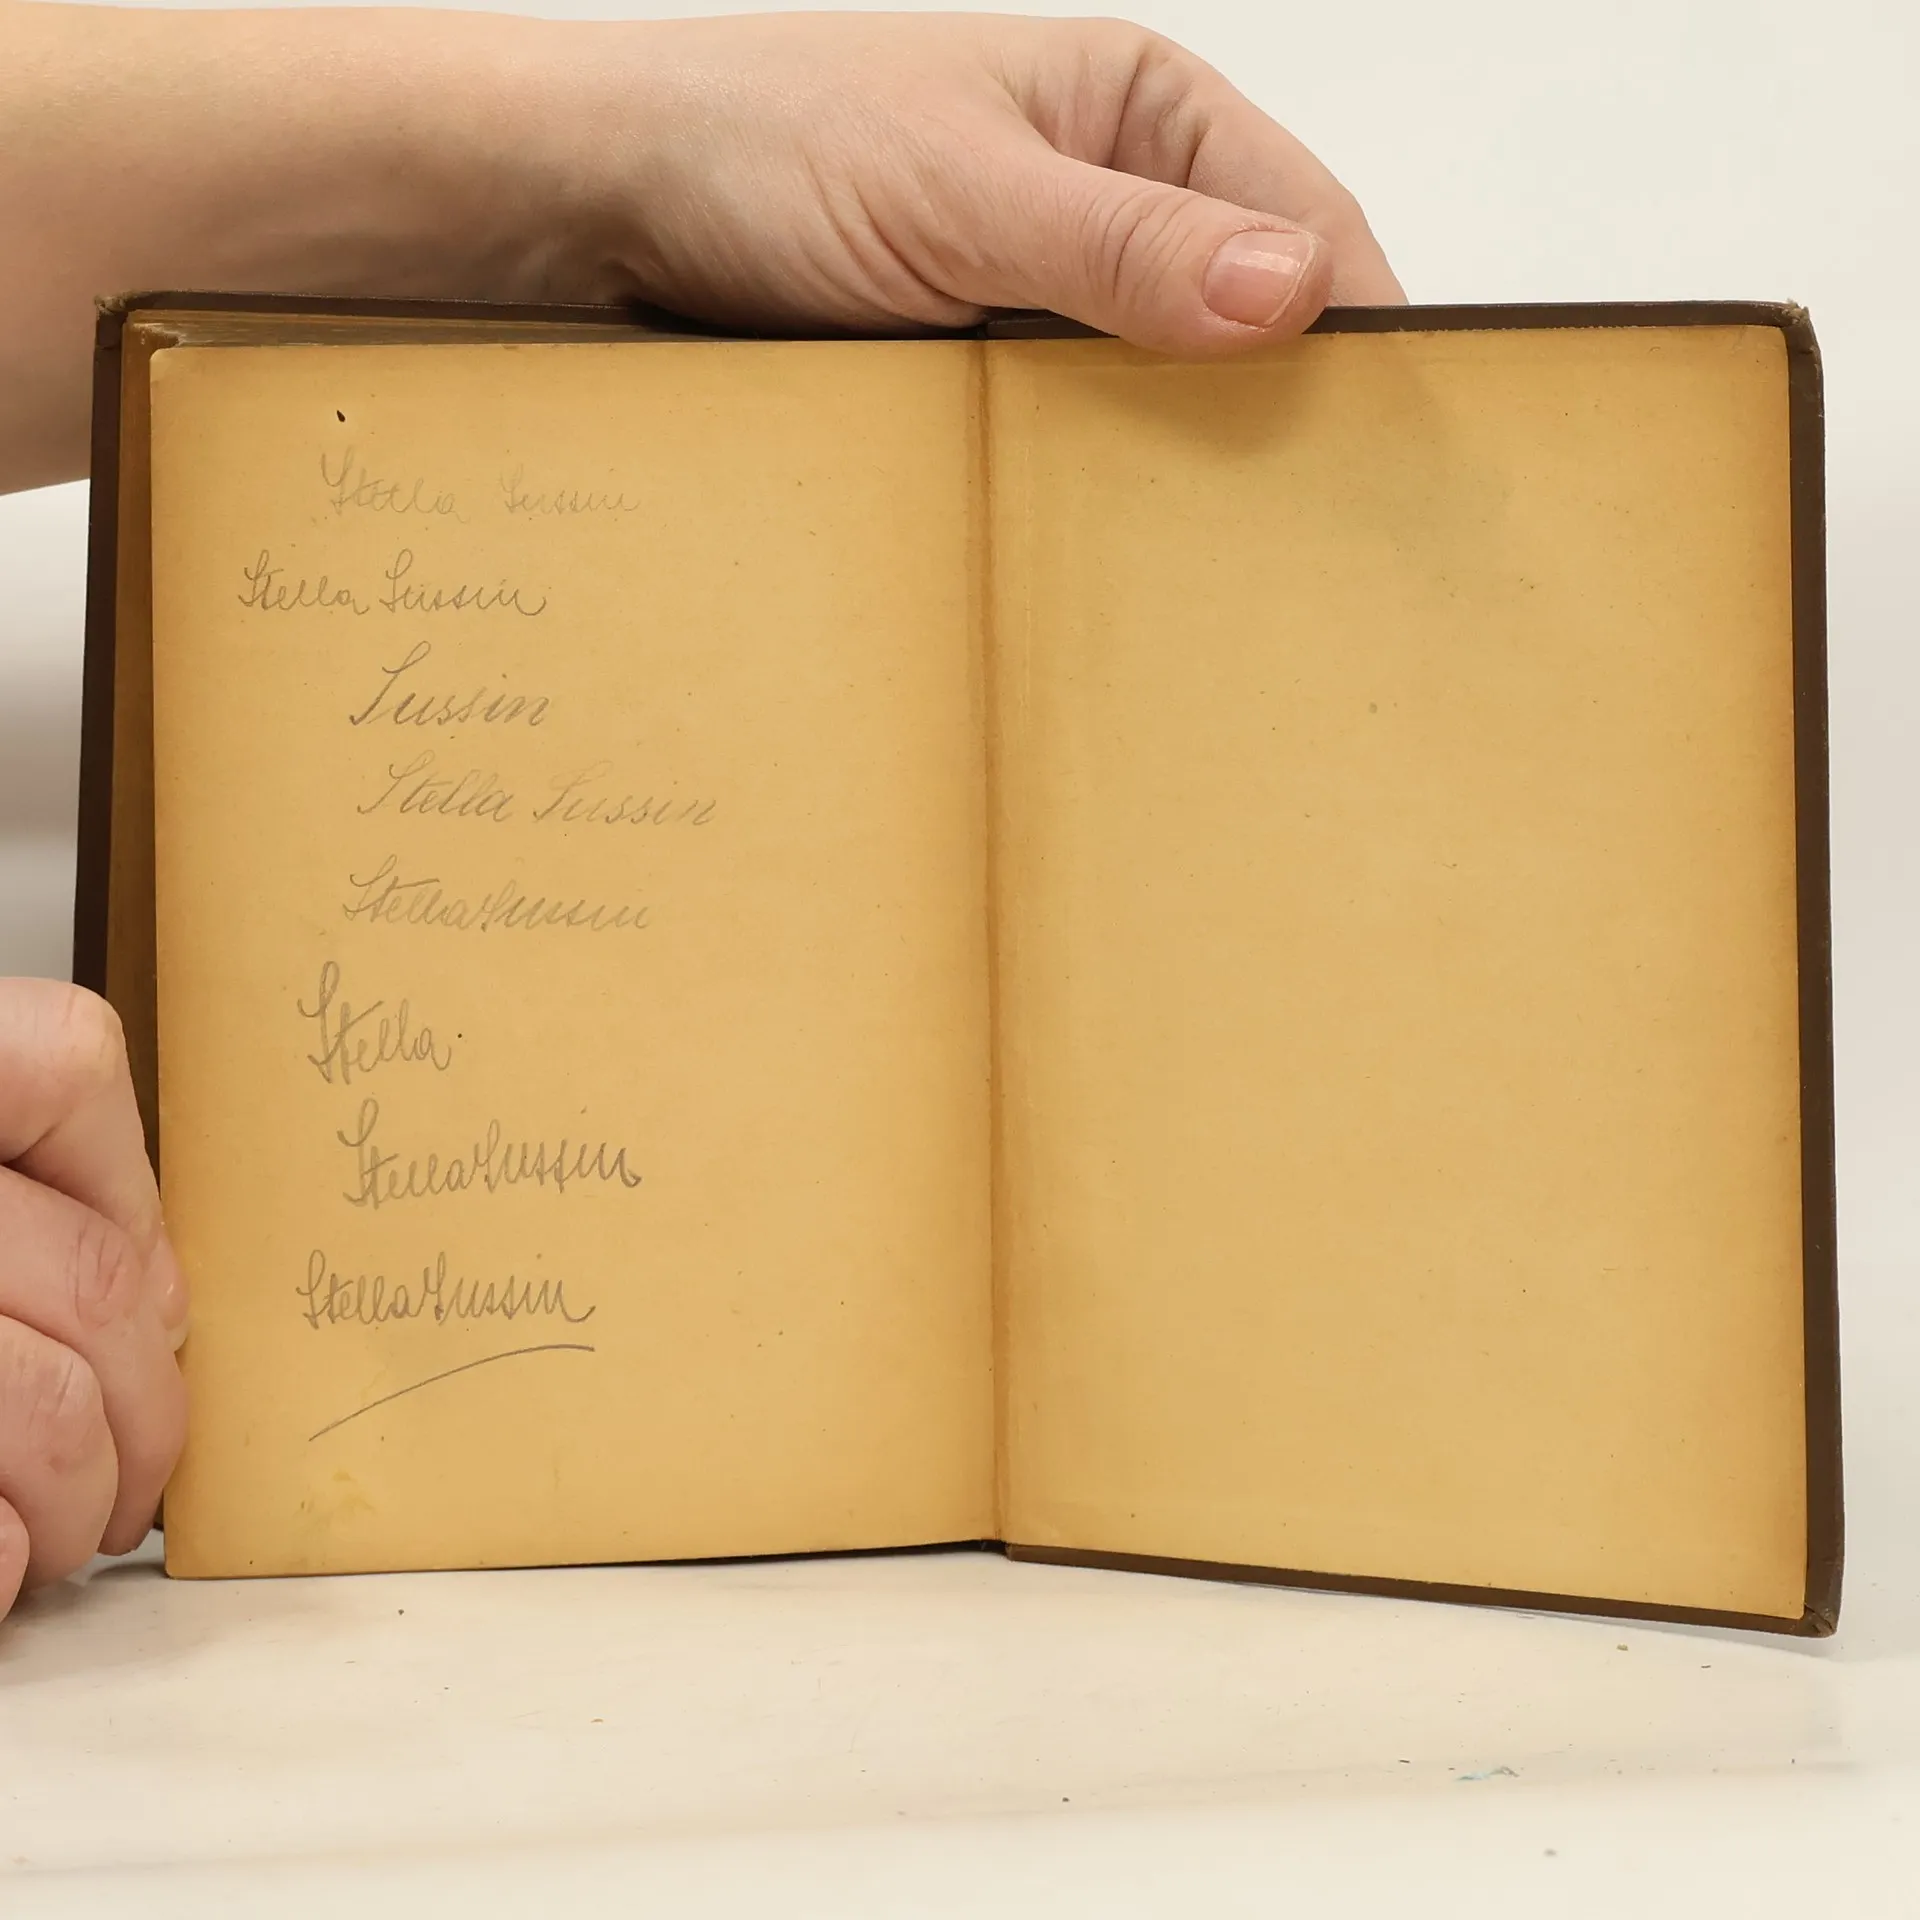 Stella Sussin
Stella Sussin
Sussin
Stella Sussin
Stella Sussin
Stella
Stella Sussin
Stella Sussin